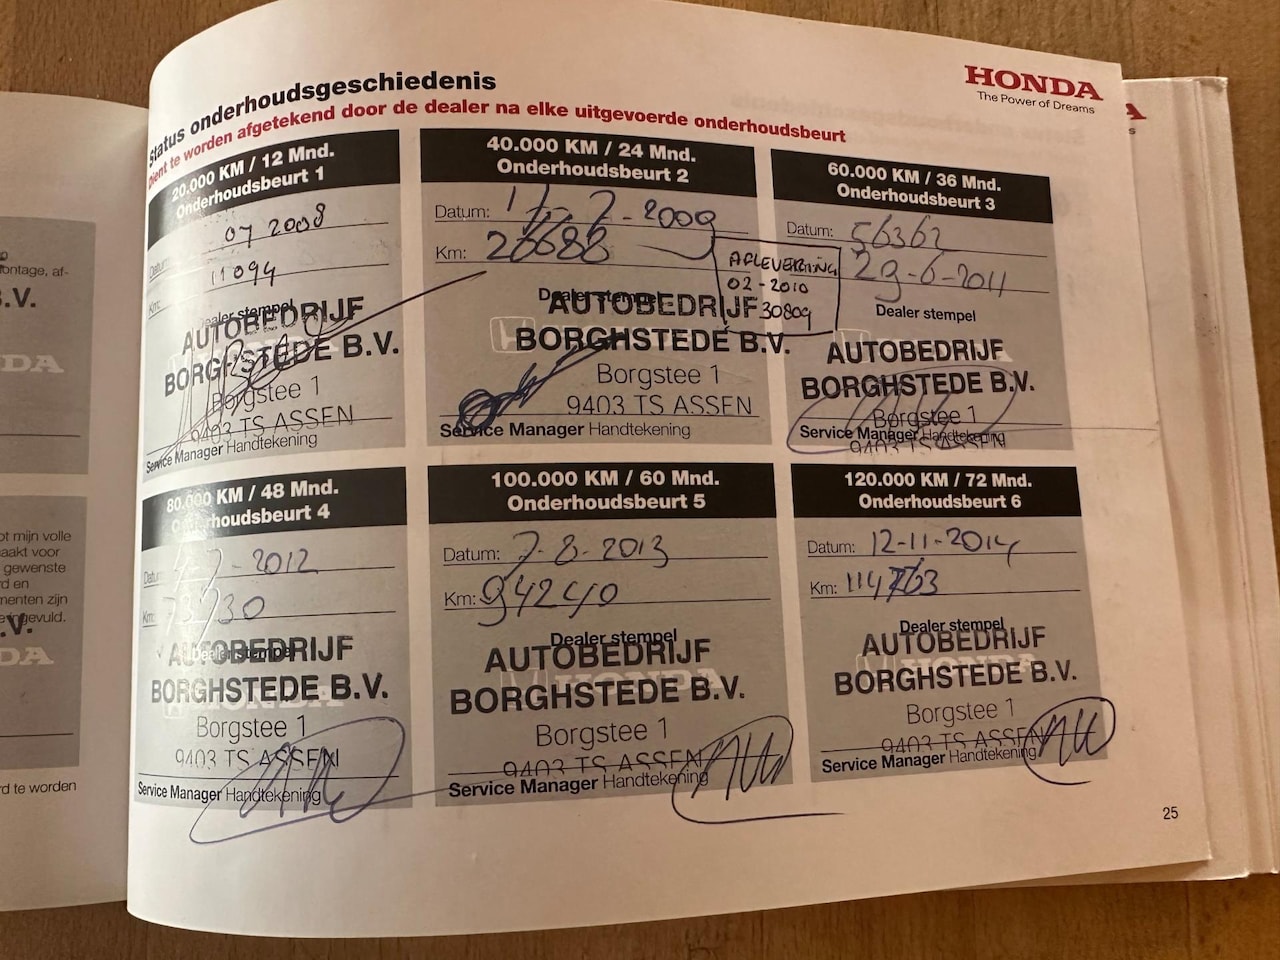 Status onderhoudsgeschiedenis
Dient te worden afgetekend door de dealer na elke uitgevoerde onderhoudsbeurt
HONDA
The Power of Dreams
20.000 KM / 12 Mnd.
Onderhoudsbeurt 1
Datum: 07 2008
Km: 11094
Dealer stempel
AUTOBEDRIJF
BORGHSTEDE B.V.
Borgstee 1
9403 TS ASSEN
Service Manager Handtekening
40.000 KM / 24 Mnd.
Onderhoudsbeurt 2
Datum: 17-7-2009
Km: 26688
AFLEVERING
02-2010
30809
Dealer stempel
AUTOBEDRIJF
BORGHSTEDE B.V.
Borgstee 1
9403 TS ASSEN
Service Manager Handtekening
60.000 KM / 36 Mnd.
Onderhoudsbeurt 3
Datum: 56362
29-6-2011
Dealer stempel
AUTOBEDRIJF
BORGHSTEDE B.V.
Borgstee 1
9403 TS ASSEN
Service Manager Handtekening
80.000 KM / 48 Mnd.
Onderhoudsbeurt 4
Datum: -2012
Km:
Dealer stempel
AUTOBEDRIJF
BORGHSTEDE B.V.
Borgstee 1
9403 TS ASSEN
Service Manager Handtekening
100.000 KM / 60 Mnd.
Onderhoudsbeurt 5
Datum: 7-8-2013
Km: 94240
Dealer stempel
AUTOBEDRIJF
BORGHSTEDE B.V.
Borgstee 1
9403 TS ASSEN
Service Manager Handtekening
120.000 KM / 72 Mnd.
Onderhoudsbeurt 6
Datum: 12-11-2014
Km: 114763
Dealer stempel
AUTOBEDRIJF
BORGHSTEDE B.V.
Borgstee 1
9403 TS ASSEN
Service Manager Handtekening
25
ontage, af-
B.V.
DA
ot mijn volle
aakt voor
gewenste
rd en
menten zijn
ingevuld.
.V.
DA
rd te worden